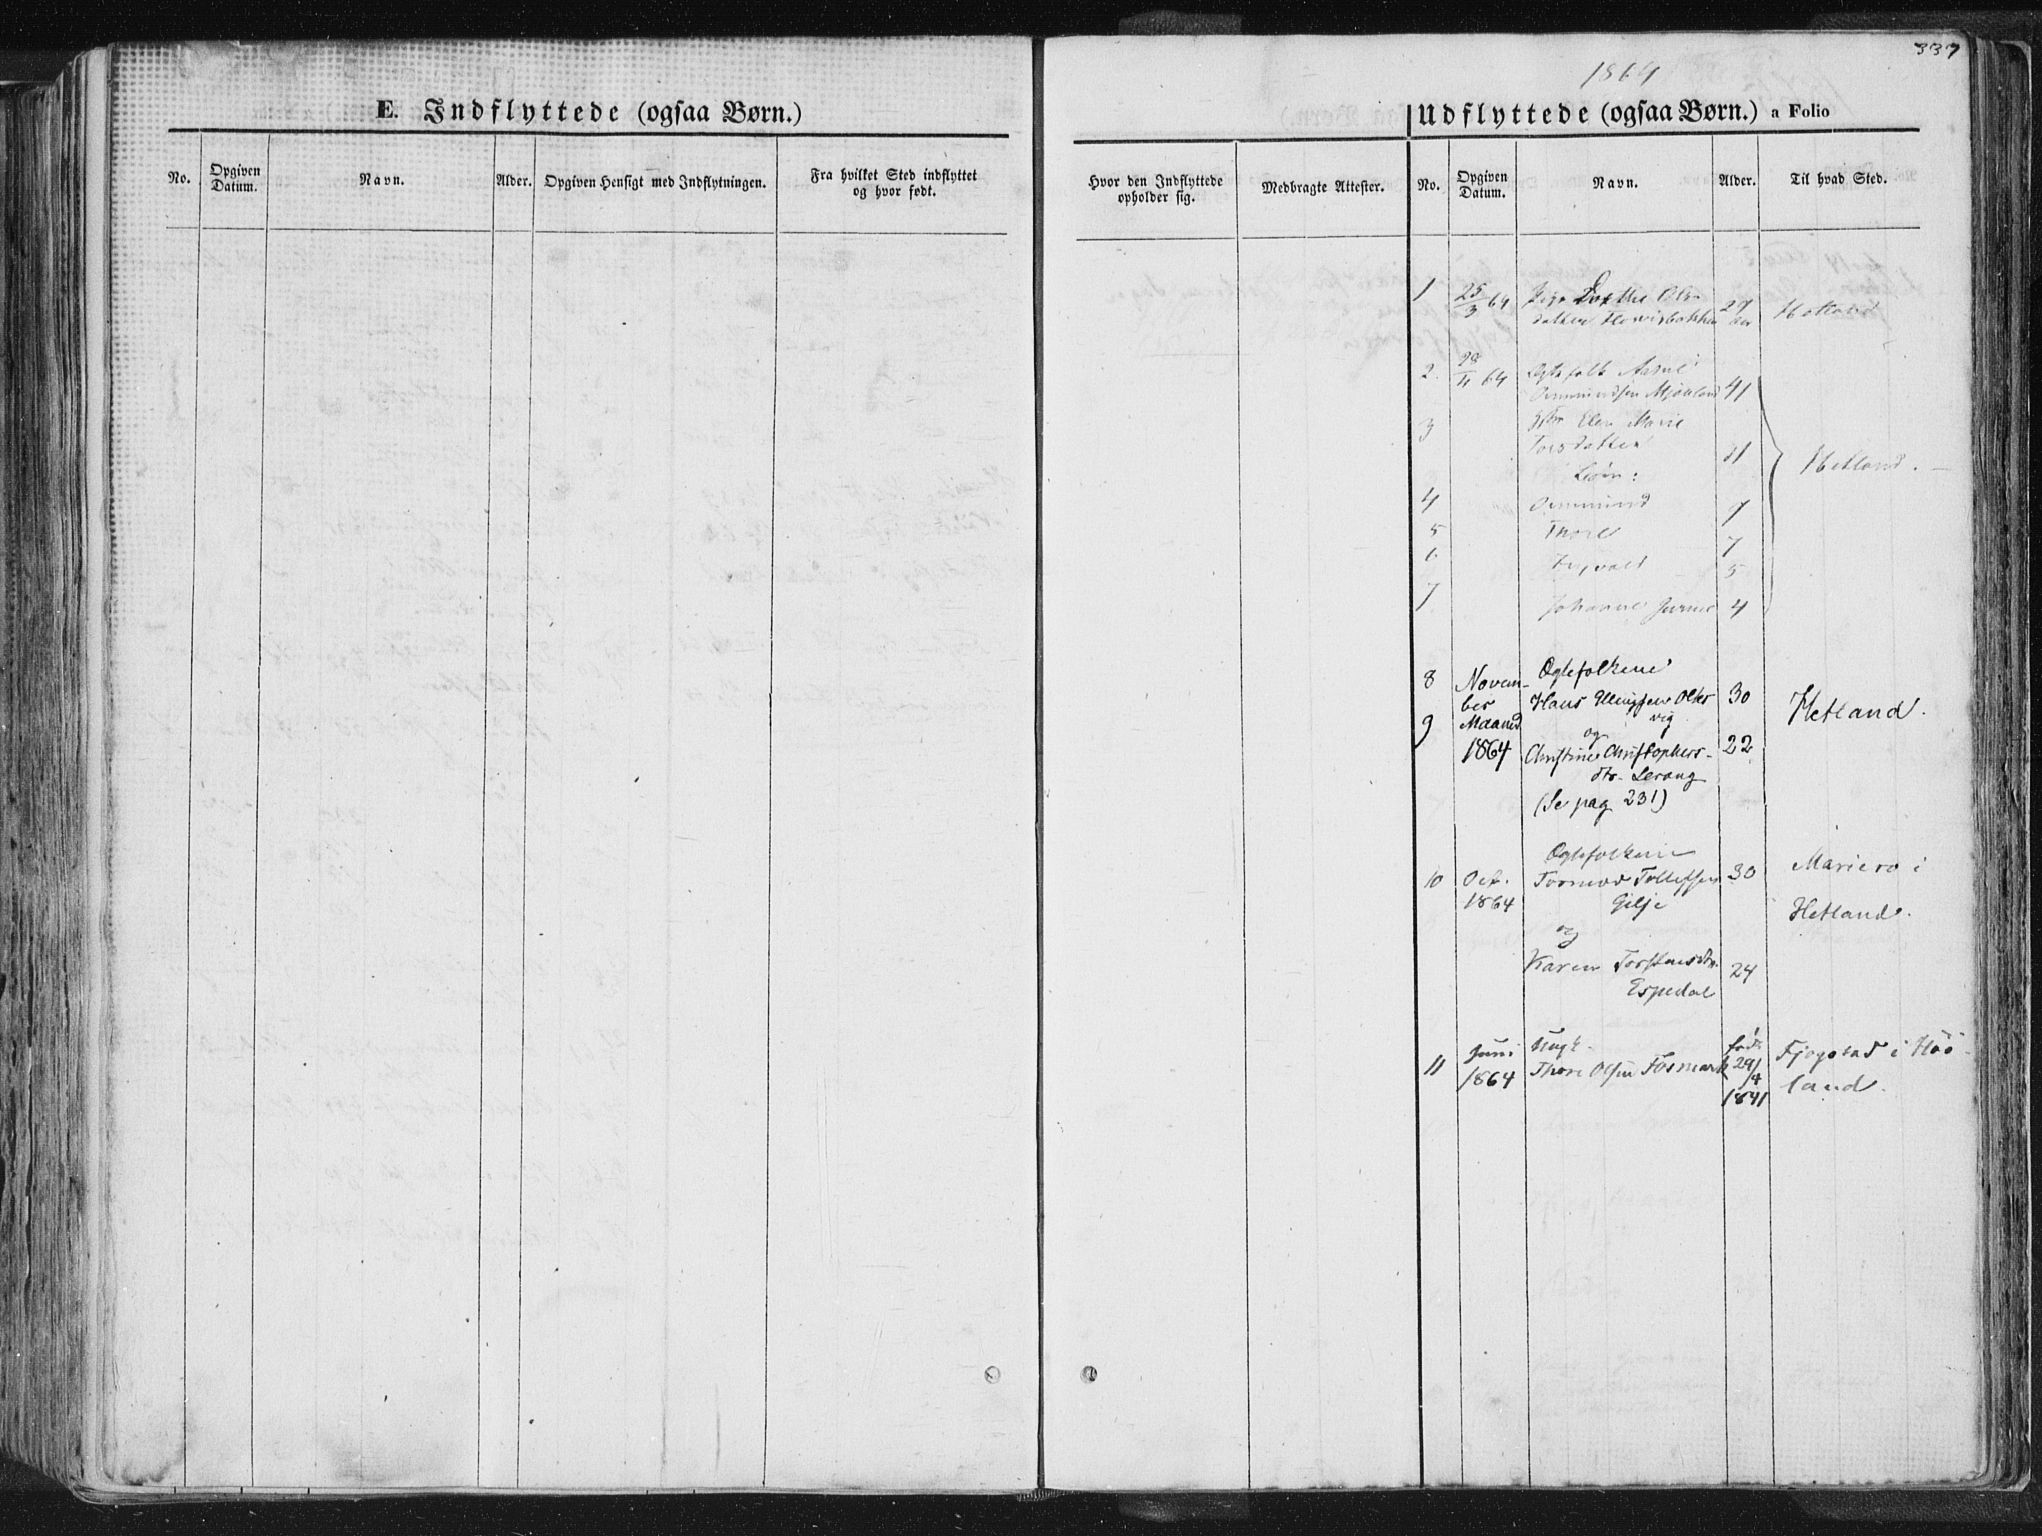 337
1864
E. Indflyttede (ogsaa Børn.)
Udflyttede (ogsaa Børn.) a Folio
No.
Opgiven Datum.
Navn.
Alder.
Opgiven Hensigt med Indflytningen.
Fra hvilket Sted indflyttet og hvor født.
Hvor den Indflyttede opholder sig.
Medbragte Attester.
No.
Opgiven Datum.
Navn.
Alder.
Til hvad Sted.
1 25/3 64 Pige Dorthe Ols- 29 Hetland
datter
2. 64 Egtefolk Aasne
Osmundsen Mjoland 41
3 Elen Marie
Torsdatter
Hetland.
Børn:
4 Osmund 7
5 Thore 7
6 5
7 Johanne 4
8 Novem- Egtefolkene
ber Hans Ellingsen Olles 30
vig
Hetland.
9 Maaned og
1864 Christine Christophers- 22
dtr. Lerang
(Se pag 231)
Egtefolkene
10 Oct. Tormod Tollefsen 30 Mariero i
1864 Gilje Hetland.
og
Karen Torstensdtr. 24
Espedal
11 Juni Ungk. født
1864 Thore Olsen Fosmark 29/4 Fjogstad i Høi-
1841 land.